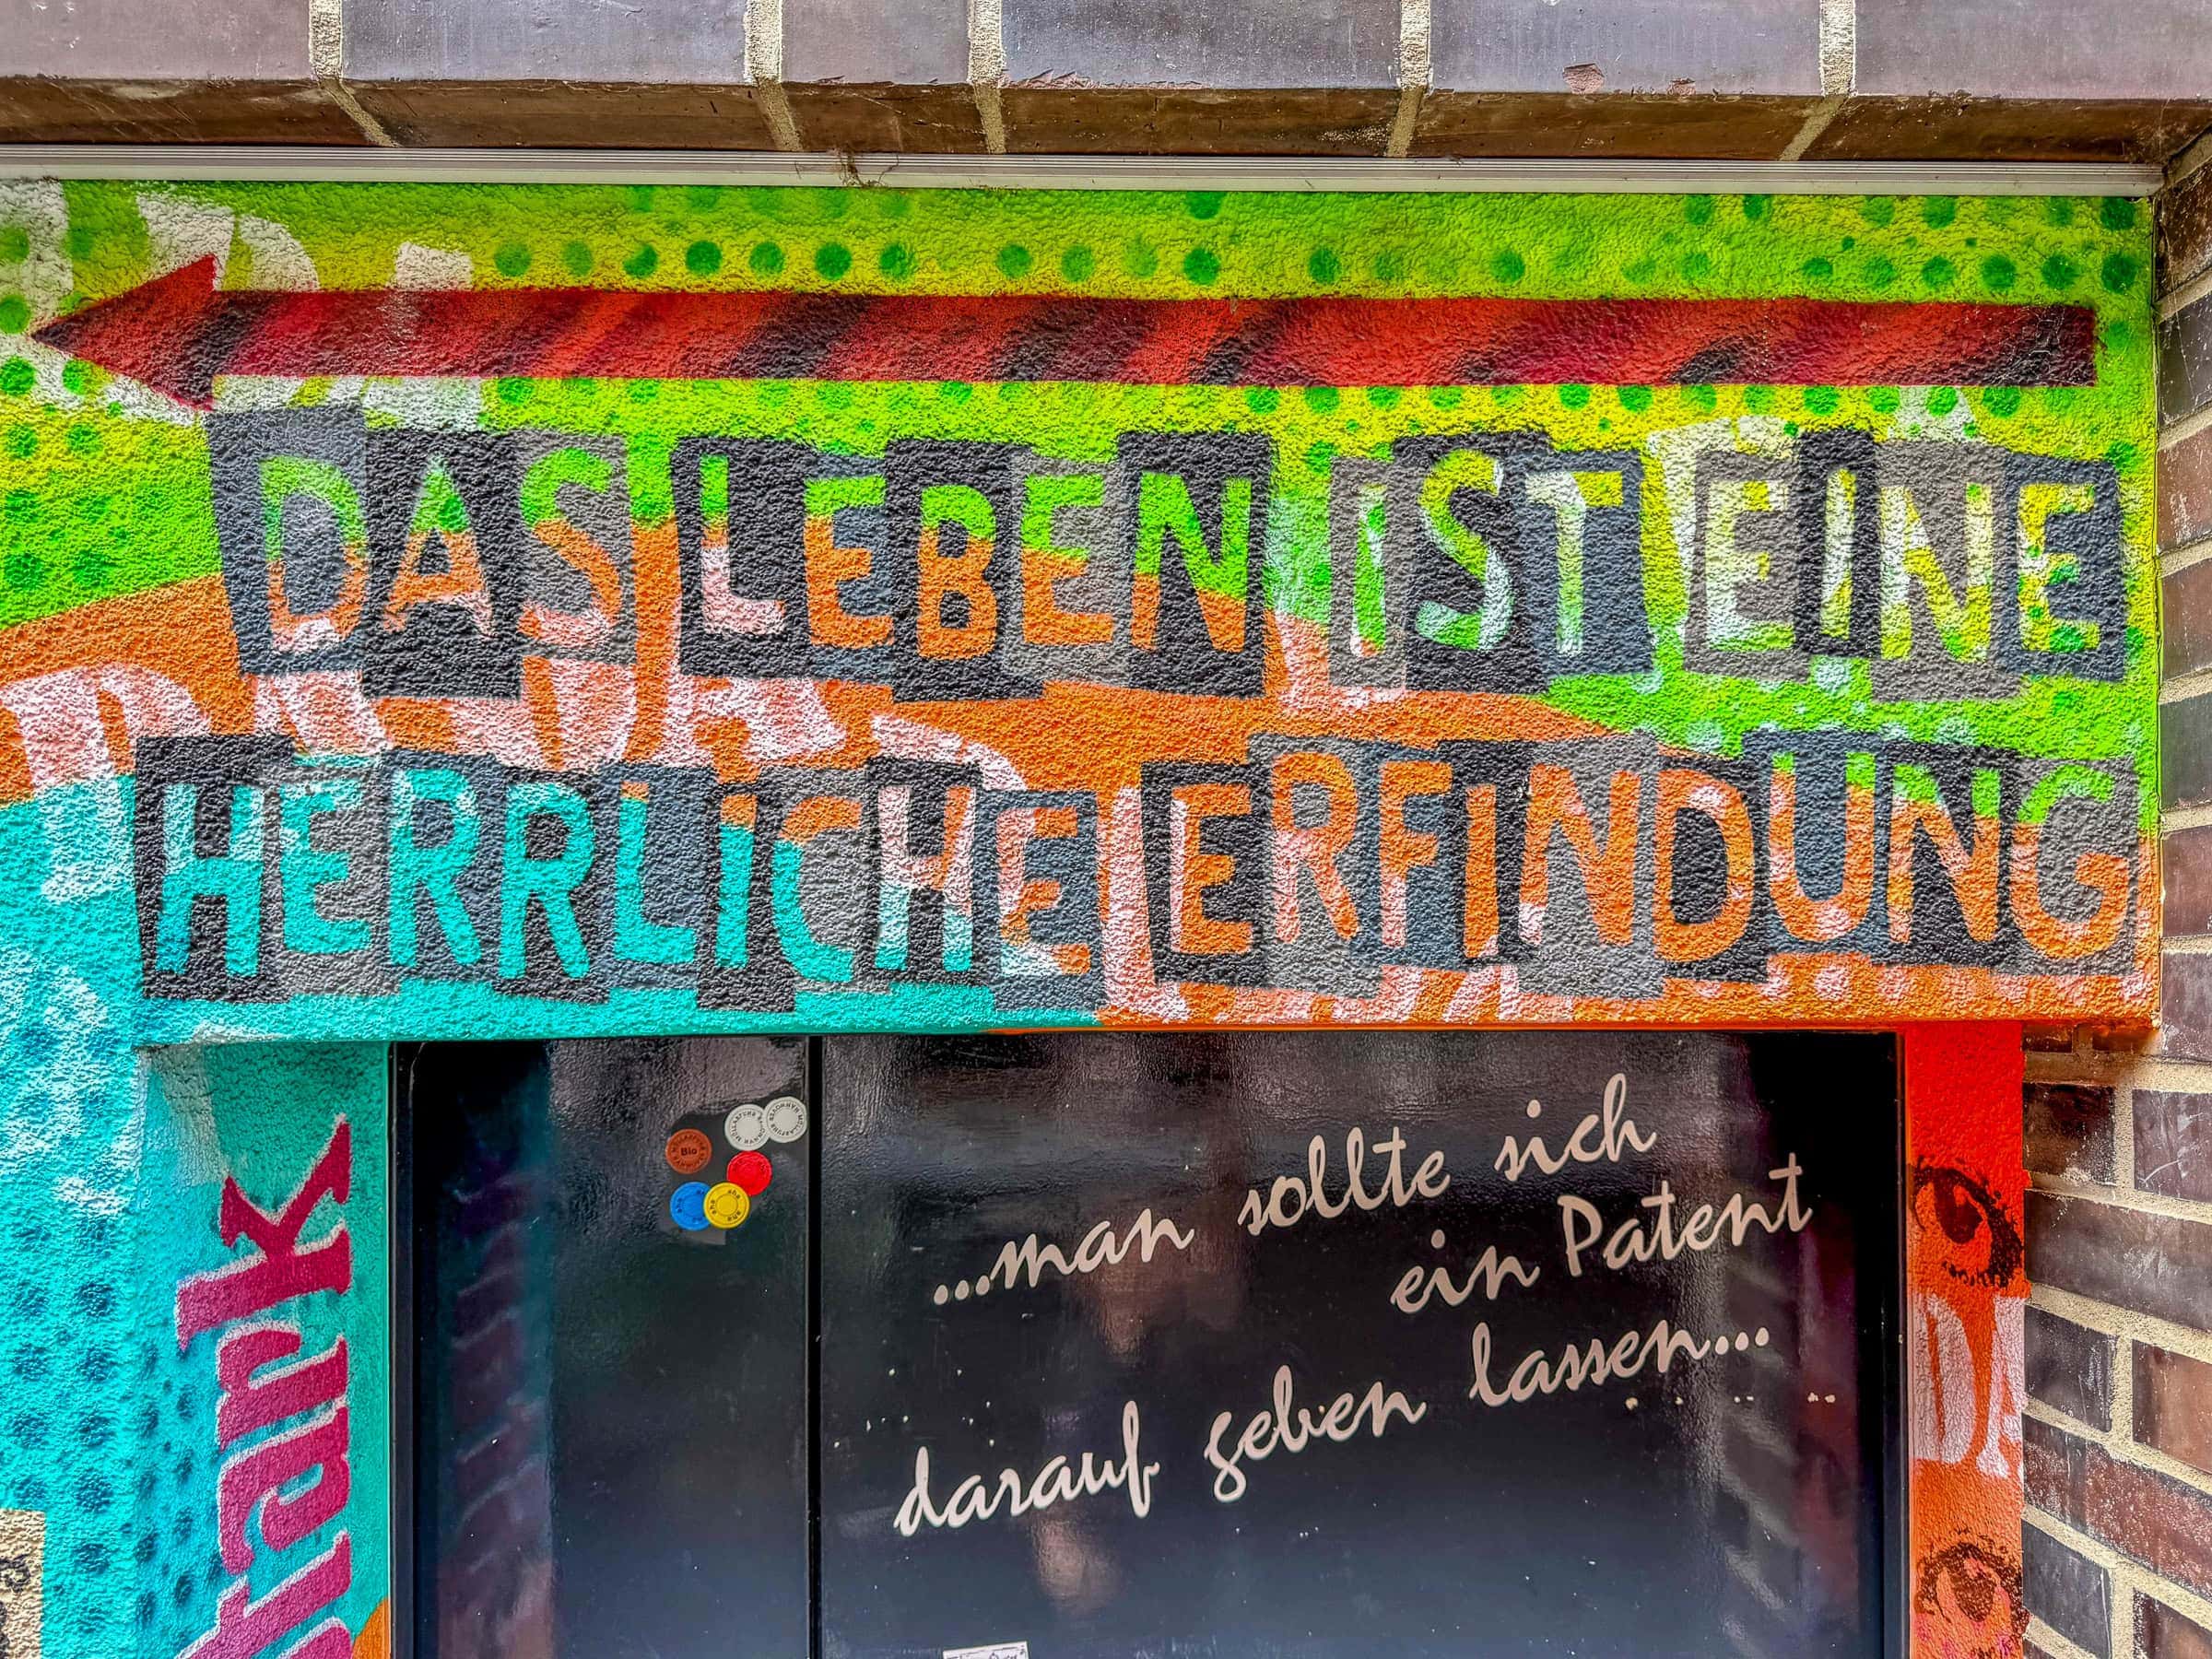 DAS LEBEN IST EINE
HERRLICHE ERFINDUNG
...man sollte sich
ein Patent
darauf geben lassen...
Bio
aha
tark
DA